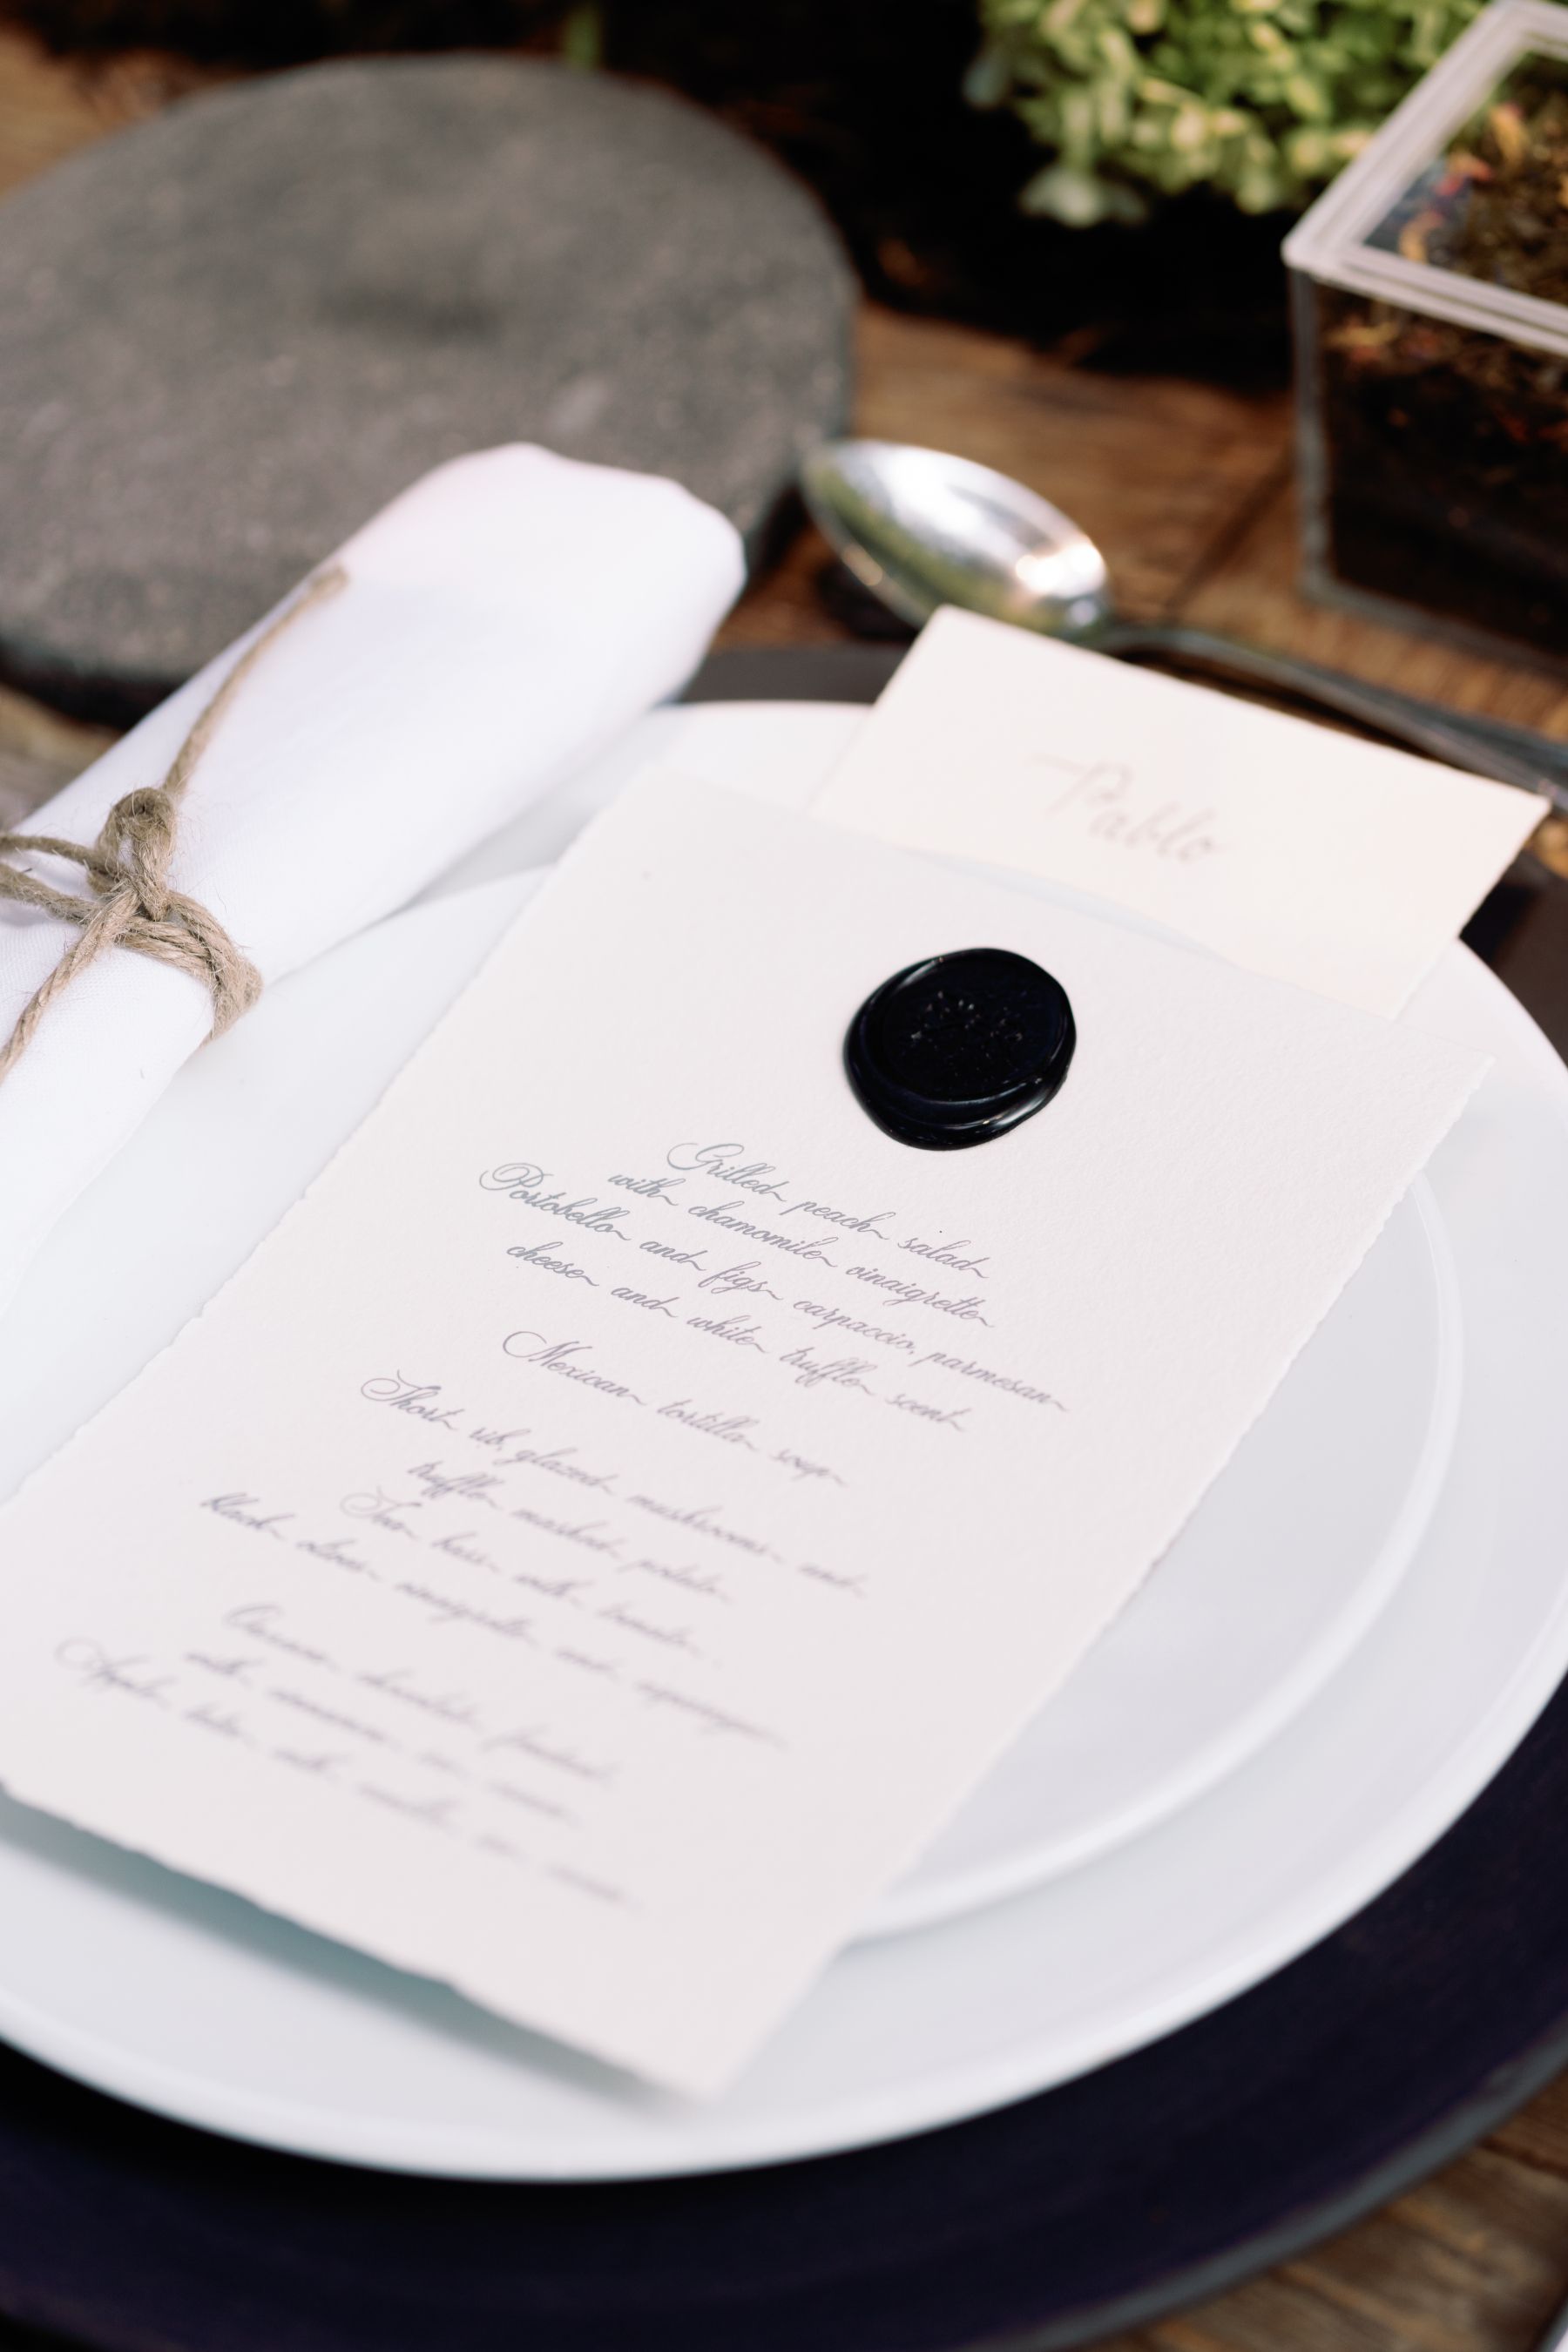 Pablo
Grilled peach salad
with chamomile vinaigrette
Portobello and figs carpaccio, parmesan
cheese and white truffle scent
Mexican tortilla soup
Short rib, glazed mushrooms and
truffle mashed potato
bass with tomato,
black olives vinaigrette and asparagus
chocolate
with cinnamon ice cream
Apple with vanilla ice cream